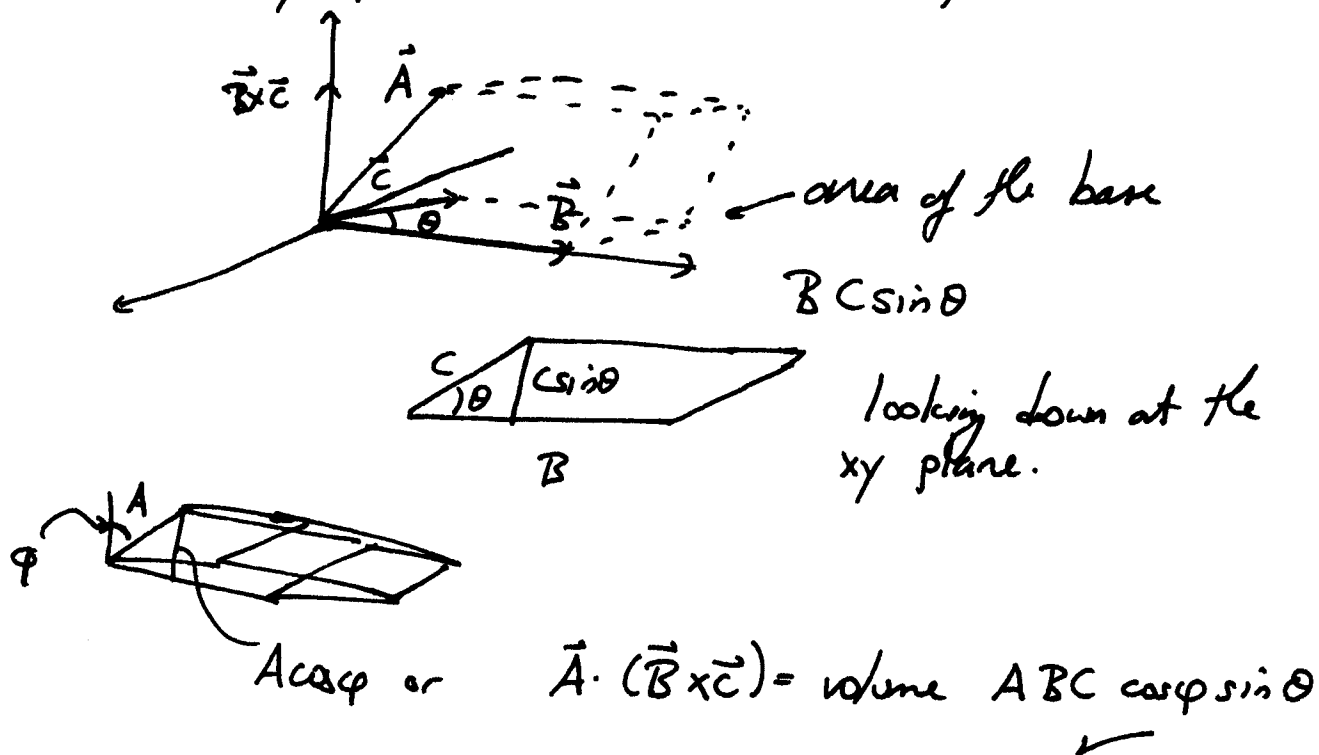 B⃗×C⃗
A⃗
C⃗
θ
B⃗
area of the base
BCsinθ
C
θ
Csinθ
B
looking down at the
xy plane.
φ
A
Acosφ or A⃗·(B⃗×C⃗)= volume ABC cosφ sinθ